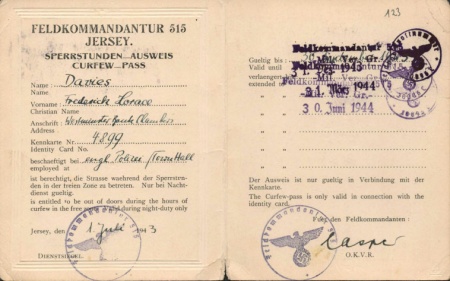 FELDKOMMANDANTUR 515
JERSEY.
SPERRSTUNDEN-AUSWEIS
CURFEW-PASS
Name : Davies
Name
Vorname : Frederick Horace
Christian Name
Anschrift :
Address
Kennkarte Nr. : 4899
Identity Card No.
beschaeftigt bei engl. Polizei (Town Hall
employed at
ist berechtigt, die Strasse waehrend der Sperrstunden
in der freien Zone zu betreten. Nur bei Nachtdienst
gueltig.
is entitled to be out of doors during the hours of
curfew in the free during night-duty only
Jersey, den 1. Juli 1943
DIENSTSIEGEL
123
Gueltig bis
Valid until
verlaengert
extended
Feldkommandantur 515
Mil. Ver. Gr.
1943
Feldkommandantur
31. März 1944
Mil. Ver. Gr.
30. Juni 1944
Der Ausweis ist nur gueltig in Verbindung mit der
Kennkarte.
The Curfew-pass is only valid in connection with the
identity card.
Für den Feldkommandanten :
Casper
O.K.V.R.
Feldkommandantur 515
Feldkommandantur 515